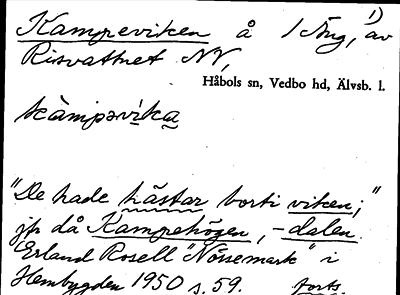 Kampeviken å 1 Äng, 1) av
Risvattnet NV,
Håbols sn, Vedbo hd, Älvsb. l.
kàmpəvika
"De hade hästar borti viken;"
jfr då Kampehögen, -dalen.
Erland Rosell "Nössemark" i
Hembygden 1950 s. 59. forts.